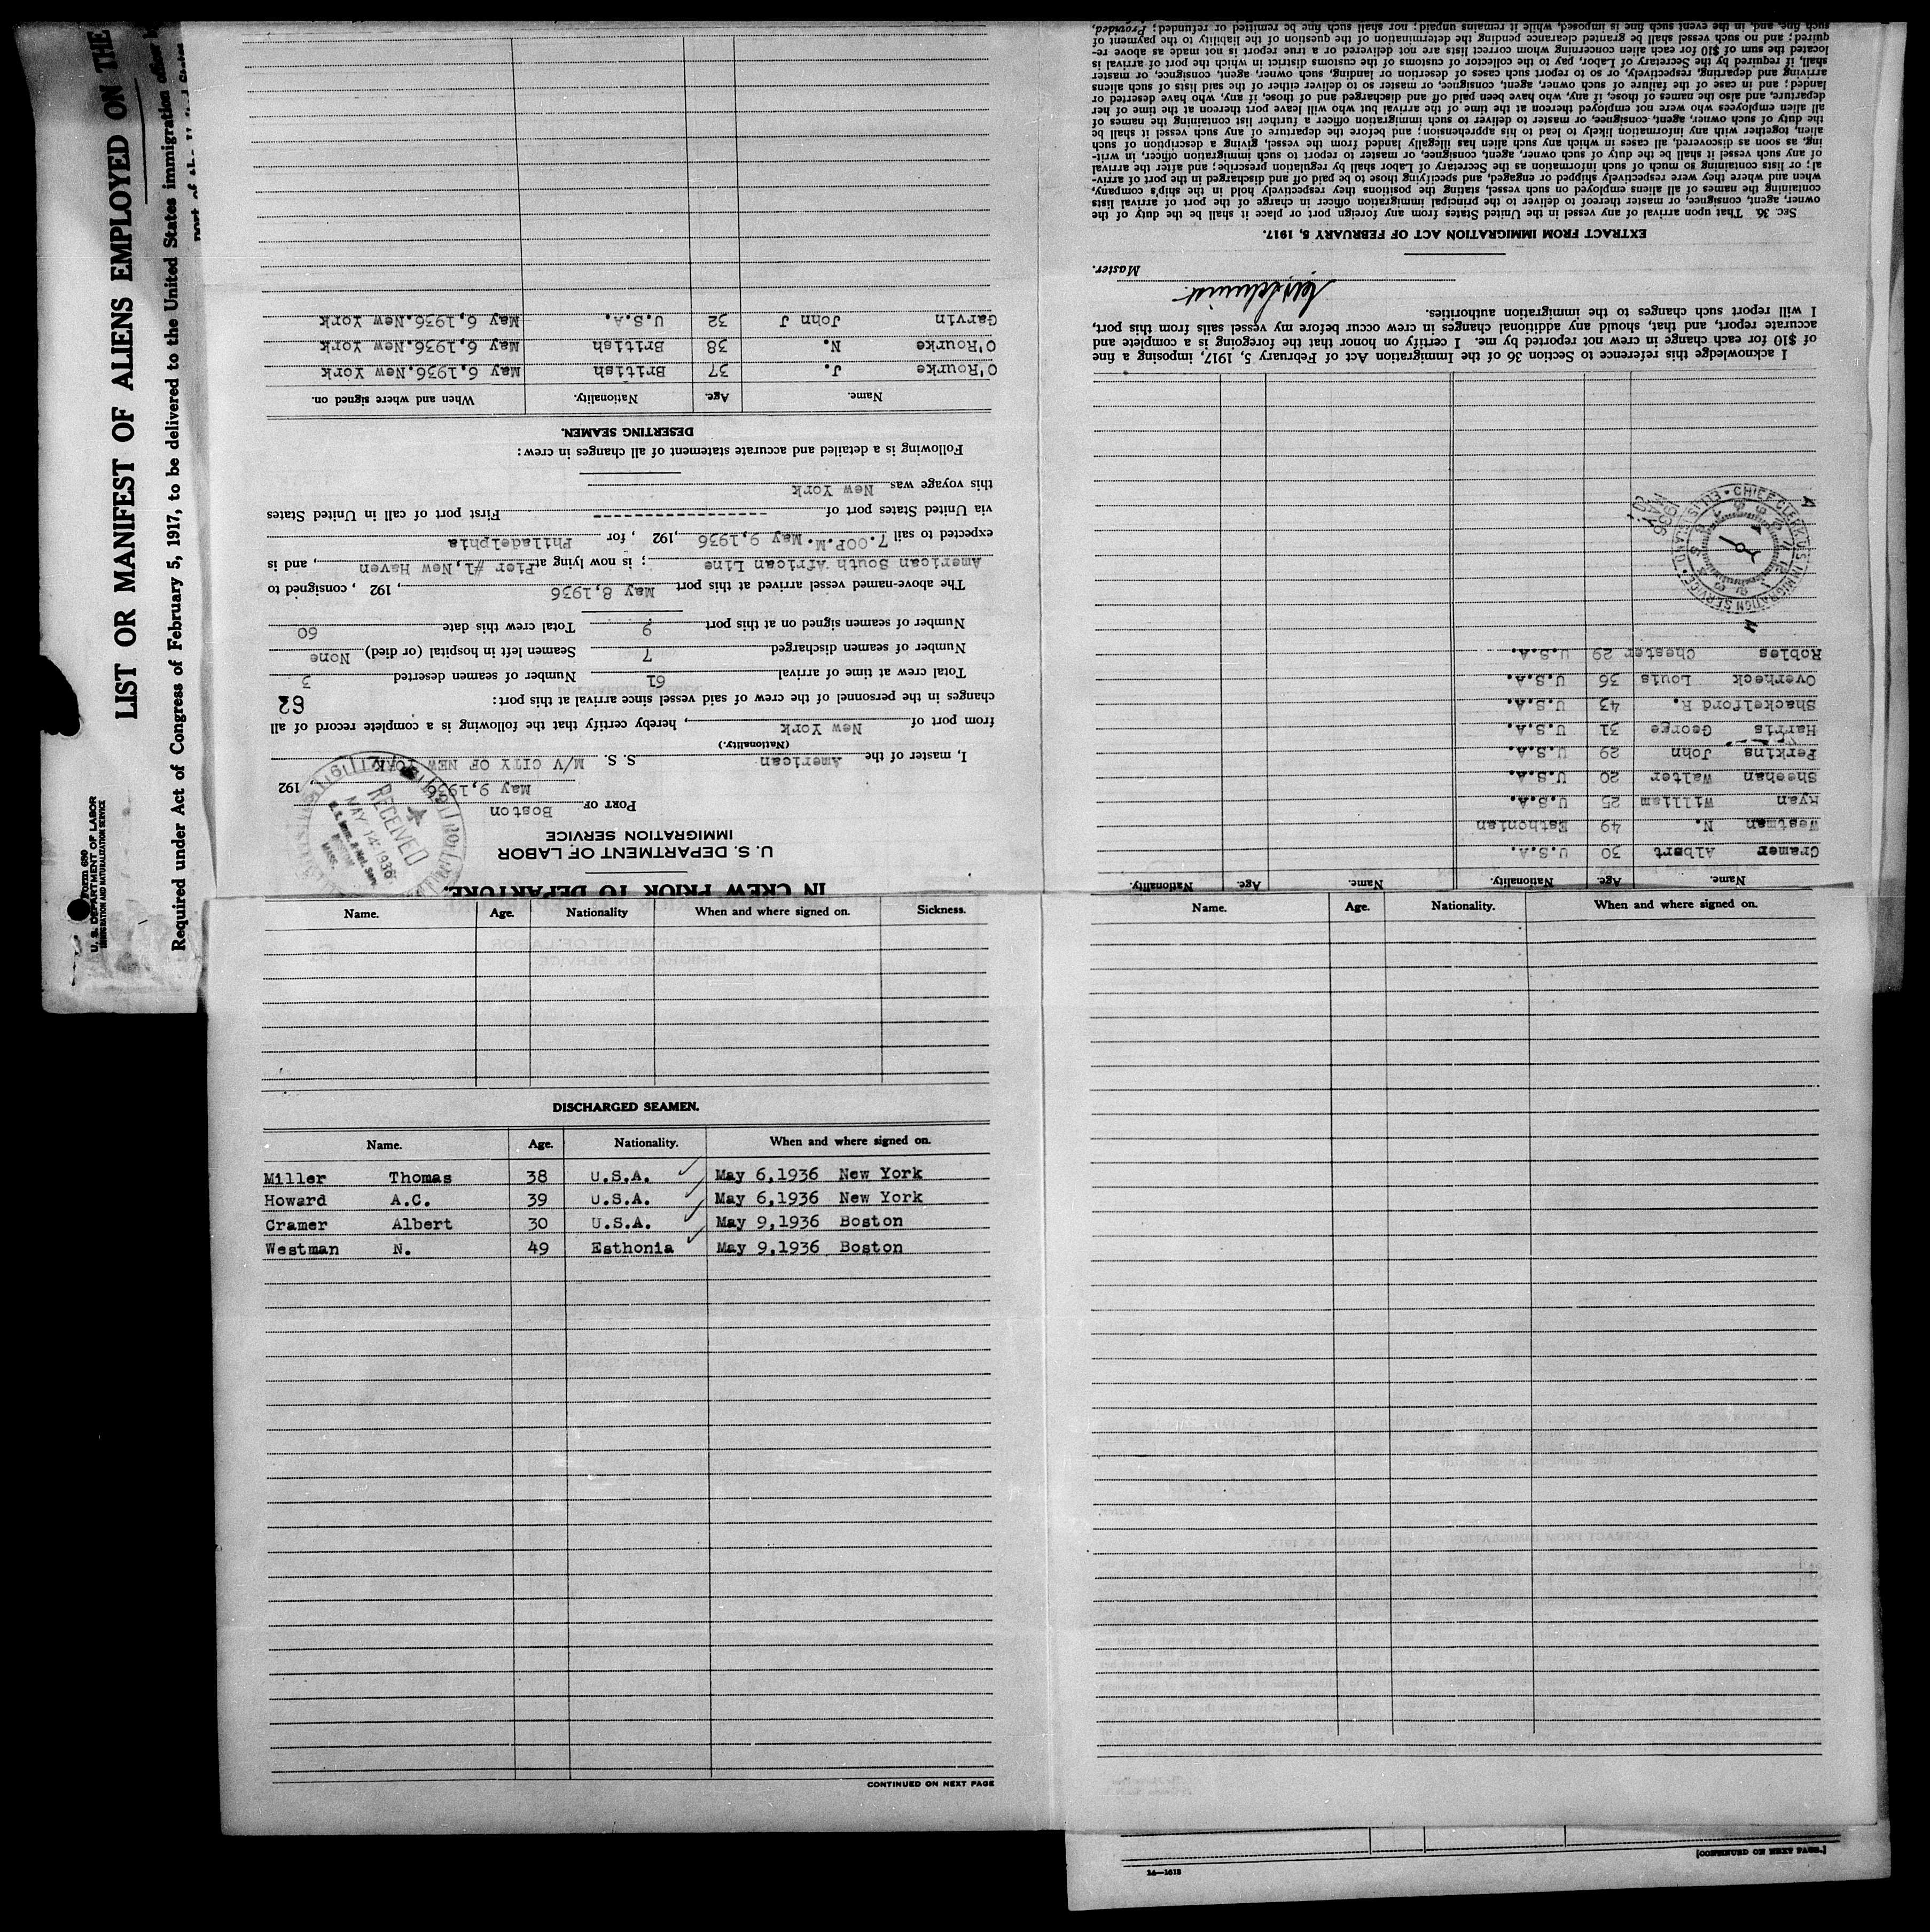 LIST OR MANIFEST OF ALIENS EMPLOYED ON THE
Required under Act of Congress of February 5, 1917, to be delivered to the United States immigration officer
Form 680
U. S. DEPARTMENT OF LABOR
IMMIGRATION AND NATURALIZATION SERVICE
IN CREW PRIOR TO DEPARTURE.
U. S. DEPARTMENT OF LABOR
IMMIGRATION SERVICE
PORT OF Boston
May 9,1936 , 192
RECEIVED
MAY 14 1936
BOSTON
MASS.
I, master of the American S. S. M/V CITY OF NEW YORK
(Nationality.)
from port of New York , hereby certify that the following is a complete record of all
changes in the personnel of the crew of said vessel since arrival at this port:
82
Total crew at time of arrival 61 Number of seamen deserted 3
Number of seamen discharged 7 Seamen left in hospital (or died) None
Number of seamen signed on at this port 9 Total crew this date 60
The above-named vessel arrived at this port May 8,1936 , 192 , consigned to
American South African Line ; is now lying at Pier #1, New Haven , and is
expected to sail 7.00P.M. May 9,1936 , 192 , for Philadelphia
via United States port of ---------------- First port of call in United States
this voyage was New York
Following is a detailed and accurate statement of all changes in crew:
DESERTING SEAMEN.
Name. Age. Nationality. When and where signed on.
O'Rourke J. 37 British May 6,1936.New York
O'Rourke N. 38 British May 6,1936.New York
Garvin John J 32 U.S.A. May 6,1936.New York
Name. Age. Nationality. Name. Age. Nationality.
Cramer Albert 30 U.S.A.
Westman N. 49 Esthonian
Ryan William 25 U.S.A.
Sheehan Walter 20 U.S.A.
Perkins John 29 U.S.A.
Harris George 31 U.S.A.
Shackelford R. 43 U.S.A.
Overheck Louis 36 U.S.A.
Robles Chester 29 U.S.A.
CHIEF CLERK U.S. IMMIGRATION SERVICE • ELLIS ISLAND
I acknowledge this reference to Section 36 of the Immigration Act of February 5, 1917, imposing a fine
of $10 for each change in crew not reported by me. I certify on honor that the foregoing is a complete and
accurate report, and that, should any additional changes in crew occur before my vessel sails from this port,
I will report such changes to the immigration authorities.
Master.
EXTRACT FROM IMMIGRATION ACT OF FEBRUARY 5, 1917.
SEC. 36. That upon arrival of any vessel in the United States from any foreign port or place it shall be the duty of the
owner, agent, consignee, or master thereof to deliver to the principal immigration officer in charge of the port of arrival lists
containing the names of all aliens employed on such vessel, stating the positions they respectively hold in the ship's company,
when and where they were respectively shipped or engaged, and specifying those to be paid off and discharged in the port of arriv-
al; or lists containing so much of such information as the Secretary of Labor shall by regulation prescribe; and after the arrival
of any such vessel it shall be the duty of such owner, agent, consignee, or master to report to such immigration officer, in writ-
ing, as soon as discovered, all cases in which any such alien has illegally landed from the vessel, giving a description of such
alien, together with any information likely to lead to his apprehension; and before the departure of any such vessel it shall be
the duty of such owner, agent, consignee, or master to deliver to such immigration officer a further list containing the names of
all alien employees who were not employed thereon at the time of the arrival but who will leave port thereon at the time of her
departure, and also the names of those, if any, who have been paid off and discharged and of those, if any, who have deserted or
landed; and in case of the failure of such owner, agent, consignee, or master so to deliver either of the said lists of such aliens
arriving and departing, respectively, or so to report such cases of desertion or landing, such owner, agent, consignee, or master
shall, if required by the Secretary of Labor, pay to the collector of customs of the customs district in which the port of arrival is
located the sum of $10 for each alien concerning whom correct lists are not delivered or a true report is not made as above re-
quired; and no such vessel shall be granted clearance pending the determination of the question of the liability to the payment of
such fine and, in the event such fine is imposed, while it remains unpaid; nor shall such fine be remitted or refunded: Provided,
Name. Age. Nationality When and where signed on. Sickness.
DISCHARGED SEAMEN.
Name. Age. Nationality. When and where signed on.
Miller Thomas 38 U.S.A. May 6,1936 New York
Howard A.C. 39 U.S.A. May 6,1936 New York
Cramer Albert 30 U.S.A. May 9,1936 Boston
Westman N. 49 Esthonia May 9,1936 Boston
CONTINUED ON NEXT PAGE
Name. Age. Nationality. When and where signed on.
14—1618
[CONTINUED ON NEXT PAGE.]